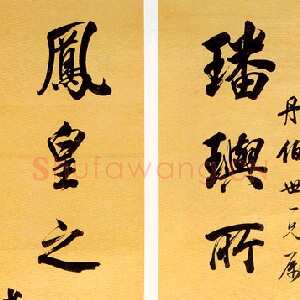 丹伯世一兄屬
璠璵所
鳳皇之
Shufawang